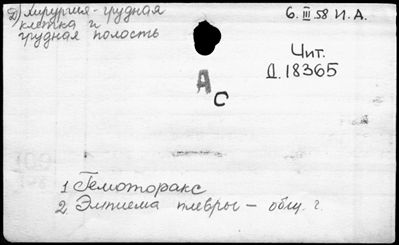 2) Хирургия - грудная
клетка и
грудная полость
6.III 58 И.А.
Чит.
Д.18365
А
С
1 Гемоторакс
2 Эмпиема плевры - общ. г.